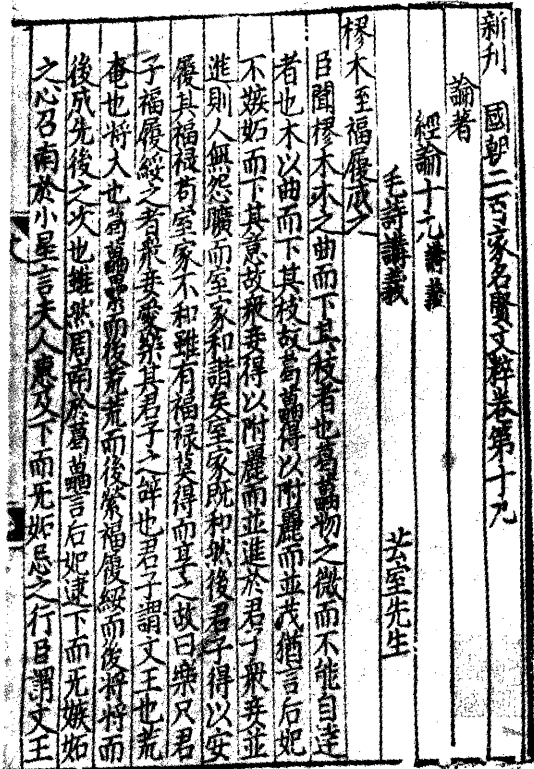 新刊國朝二百家名賢文粹卷第十九
論著
經論十九講義
毛詩講義 芸室先生
樛木至福履成之
臣聞樛木木之曲而下其枝者也葛藟物之微而不能自達
者也木以曲而下其枝故葛藟得以附麗而並茂猶言后妃
不嫉妬而下其意故衆妾得以附麗而並進於君子衆妾並
進則人無怨曠而室家和諧矣室家旣和然後君子得以安
履其福禄苟室家不和雖有福禄莫得而享之故曰樂只君
子福履綏之者衆妾愛樂其君子之辝也君子謂文王也荒
奄也將大也葛藟纍而後荒荒而後縈福履綏而後將將而
後成先後之次也雖然周南於葛藟言后妃逮下而无嫉妬
之心召南於小星言夫人惠及下而无妬忌之行臣謂文王